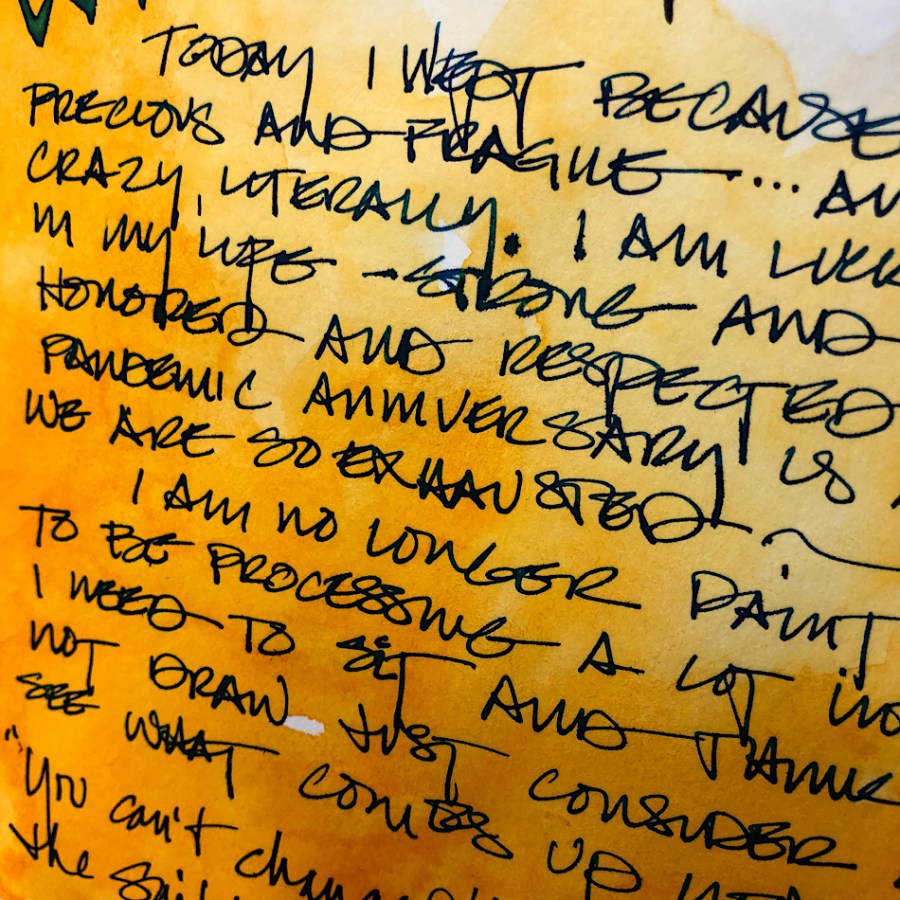 TODAY I WEPT BECAUSE
PRECIOUS AND FRAGILE ... AN
CRAZY, LITERALLY. I AM LUCK
IN MY LIFE - STRONG AND
HONORED AND RESPECTED
PANDEMIC ANNIVERSARY IS
WE ARE SO EXHAUSTED ~
I AM NO LONGER PAINT
TO BE PROCESSING A LOT IN
I NEED TO SIT AND THINK
NOT DRAW JUST CONSIDER
SEE WHAT COMES UP
"You can't change
the sail